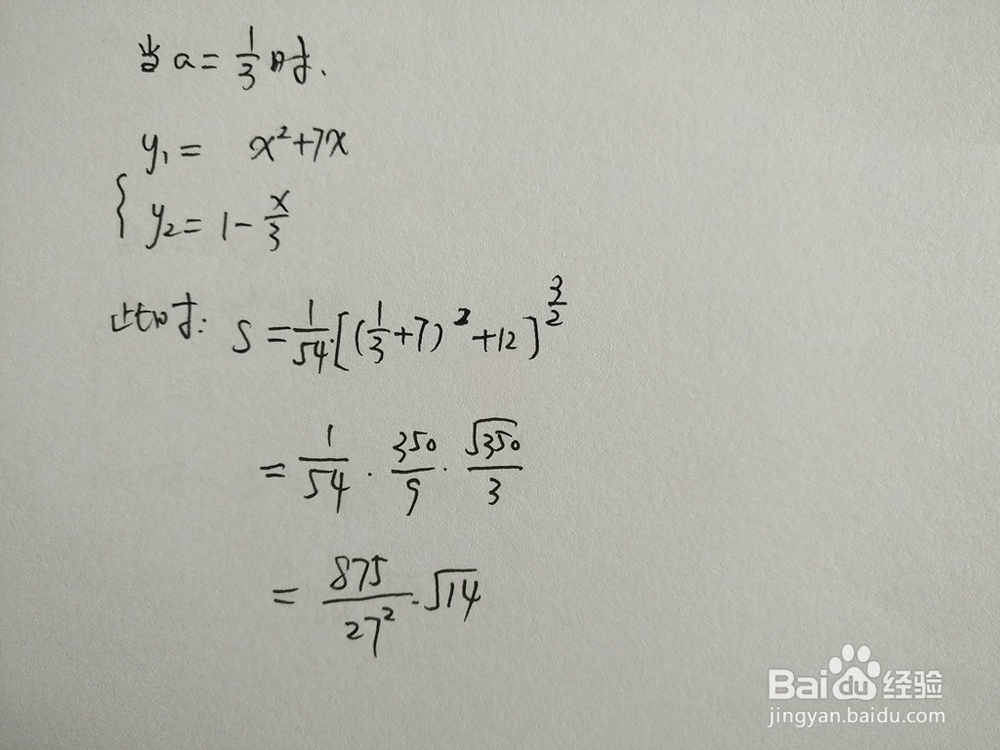 当a=1/3时.
y₁= x²+7x
{ y₂=1-x/3
此时: S=1/54·[(1/3+7)²+12]^(3/2)
=1/54·350/9·√350/3
=875/27²·√14
Baidu经验
jingyan.baidu.com